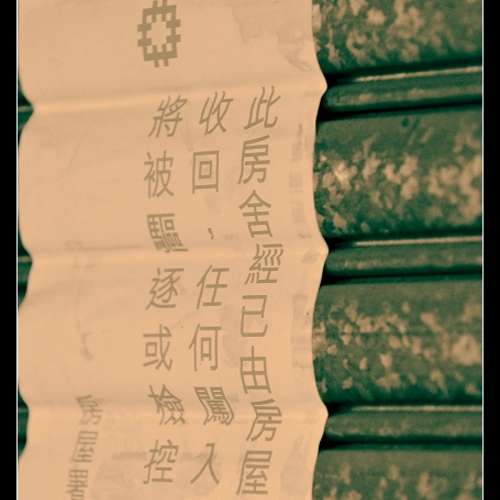 此房舍經已由房屋
收回，任何闖入
將被驅逐或檢控
房屋署